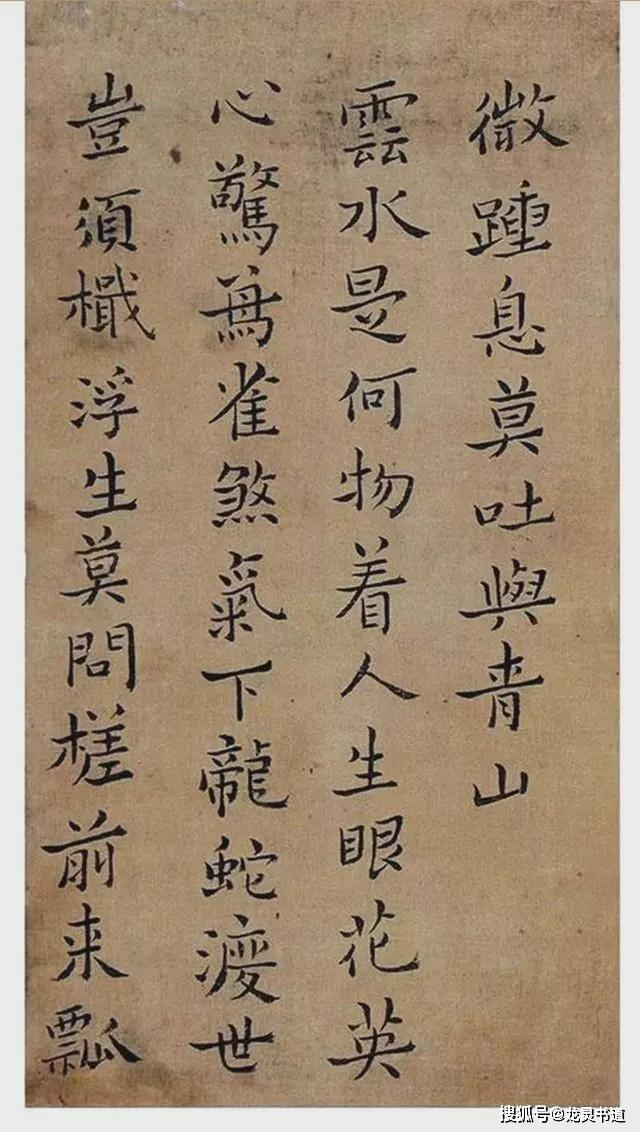 微踵息莫吐與青山
雲水是何物着人生眼花英
心驚雀煞氣下龍蛇渡世
豈須檝浮生莫問槎前来瓢
搜狐号@龙灵书道